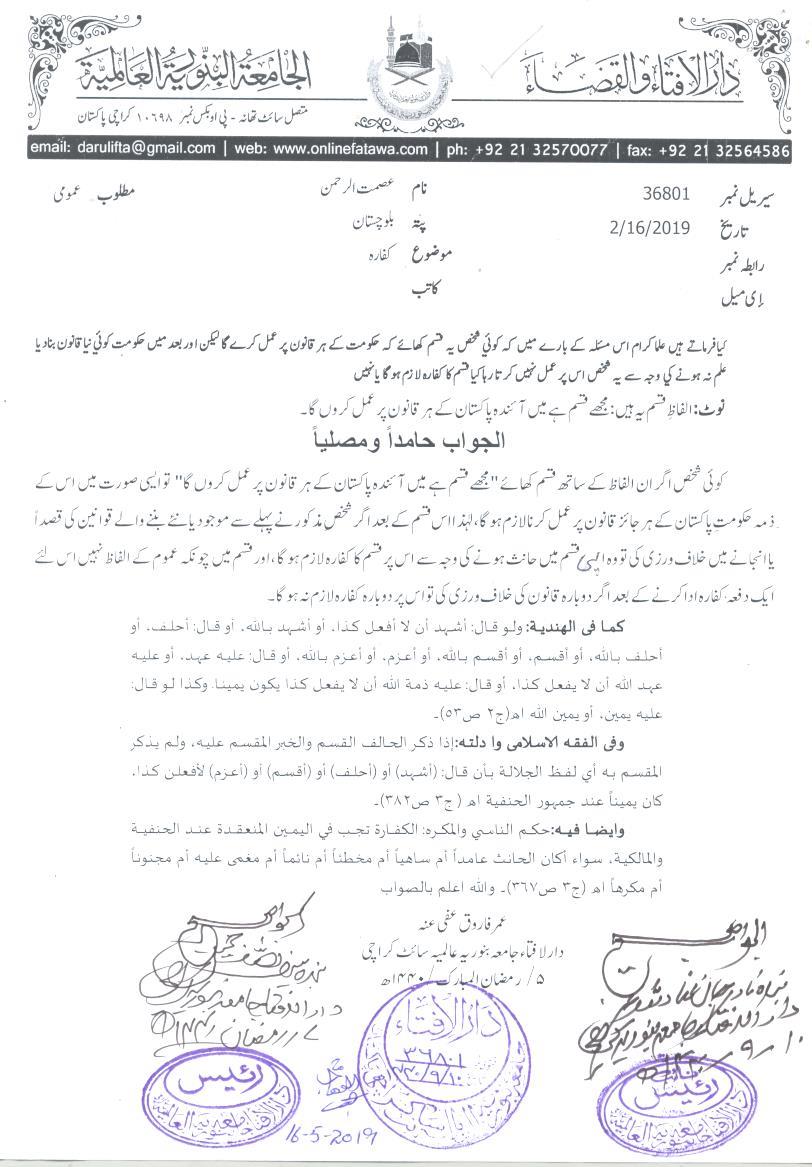 دارالافتاء والقضاء
الجامعة البنورية العالمية
متصل سائٹ تھانہ - پی او بکس نمبر ۱۰۶۹۸ کراچی پاکستان
email: darulifta@gmail.com | web: www.onlinefatawa.com | ph: +92 21 32570077 | fax: +92 21 32564586
سیریل نمبر 36801 نام عصمت الرحمن مطلوب عمومی
تاریخ 2/16/2019 پتہ بلوچستان
رابطہ نمبر موضوع کفارہ
ای میل کاتب
کیا فرماتے ہیں علما کرام اس مسئلہ کے بارے میں کہ کوئي شخص یہ قسم کھائے کہ حکومت کے ہر قانون پر عمل کرے گا لیکن اور بعد میں حکومت کوئي نیا قانون بنا دیا
علم نہ ہونے کي وجہ سے یہ شخص اس پر عمل نہیں کر تا رہا کیا قسم کا کفارہ لازم ہو گا یا نہیں
نوٹ: الفاظِ قسم یہ ہیں: مجھے قسم ہے میں آئندہ پاکستان کے ہر قانون پر عمل کروں گا۔
الجواب حامداً ومصلیاً
کوئی شخص اگر ان الفاظ کے ساتھ قسم کھائے "مجھے قسم ہے میں آئندہ پاکستان کے ہر قانون پر عمل کروں گا" تو ایسی صورت میں اس کے
ذمہ حکومتِ پاکستان کے ہر جائز قانون پر عمل کرنا لازم ہو گا، لہذا اس قسم کے بعد اگر شخصِ مذکور نے پہلے سے موجود یا نئے بننے والے قوانین کی قصداً
یا انجانے میں خلاف ورزی کی تو وہ اپنی قسم میں حانث ہونے کی وجہ سے اس پر قسم کا کفارہ لازم ہو گا، اور قسم میں چونکہ عموم کے الفاظ نہیں اس لئے
ایک دفعہ کفارہ ادا کرنے کے بعد اگر دوبارہ قانون کی خلاف ورزی کی تو اس پر دوبارہ کفارہ لازم نہ ہو گا۔
كما فى الهندية: ولو قال: أشهد أن لا أفعل كذا، أو أشهد بالله، أو قال: أحلف، أو
أحلف بالله، أو أقسم، أو أقسم بالله، أو أعزم، أو أعزم بالله، أو قال: عليه عهد، أو عليه
عهد الله أن لا يفعل كذا، أو قال: عليه ذمة الله أن لا يفعل كذا يكون يمينا. وكذا لو قال:
عليه يمين، أو يمين الله اھ(ج٢ ص٥٣)۔
وفى الفقه الاسلامى وا دلته: إذا ذكر الحالف القسم والخبر المقسم عليه، ولم يذكر
المقسم به أي لفظ الجلالة بأن قال: (أشهد) أو (أحلف) أو (أقسم) أو (أعزم) لأفعلن كذا،
كان يميناً عند جمهور الحنفية اھ ( ج٣ ص٣٨٢)۔
وايضا فيه: حكم الناسي والمكره: الكفارة تجب في اليمين المنعقدة عند الحنفية
والمالكية، سواء أكان الحانث عامداً أم ساهياً أم مخطئاً أم نائماً أم مغمى عليه أم مجنوناً
أم مكرهاً اھ (ج٣ ص٣٦٧)۔ والله اعلم بالصواب
عمر فاروق عفی عنہ
دارالافتاء جامعہ بنوریہ عالمیہ سائٹ کراچی
۵/ رمضان المبارک/ ۱۴۴۰ھ
الجواب صحیح
الجواب صحیح
دارالافتاء جامعہ بنوریہ
دار الافتاء جامعہ بنوریہ کراچی
دار الافتاء
۳۶۸۰۱
رئیس
رئیس
16-5-2019